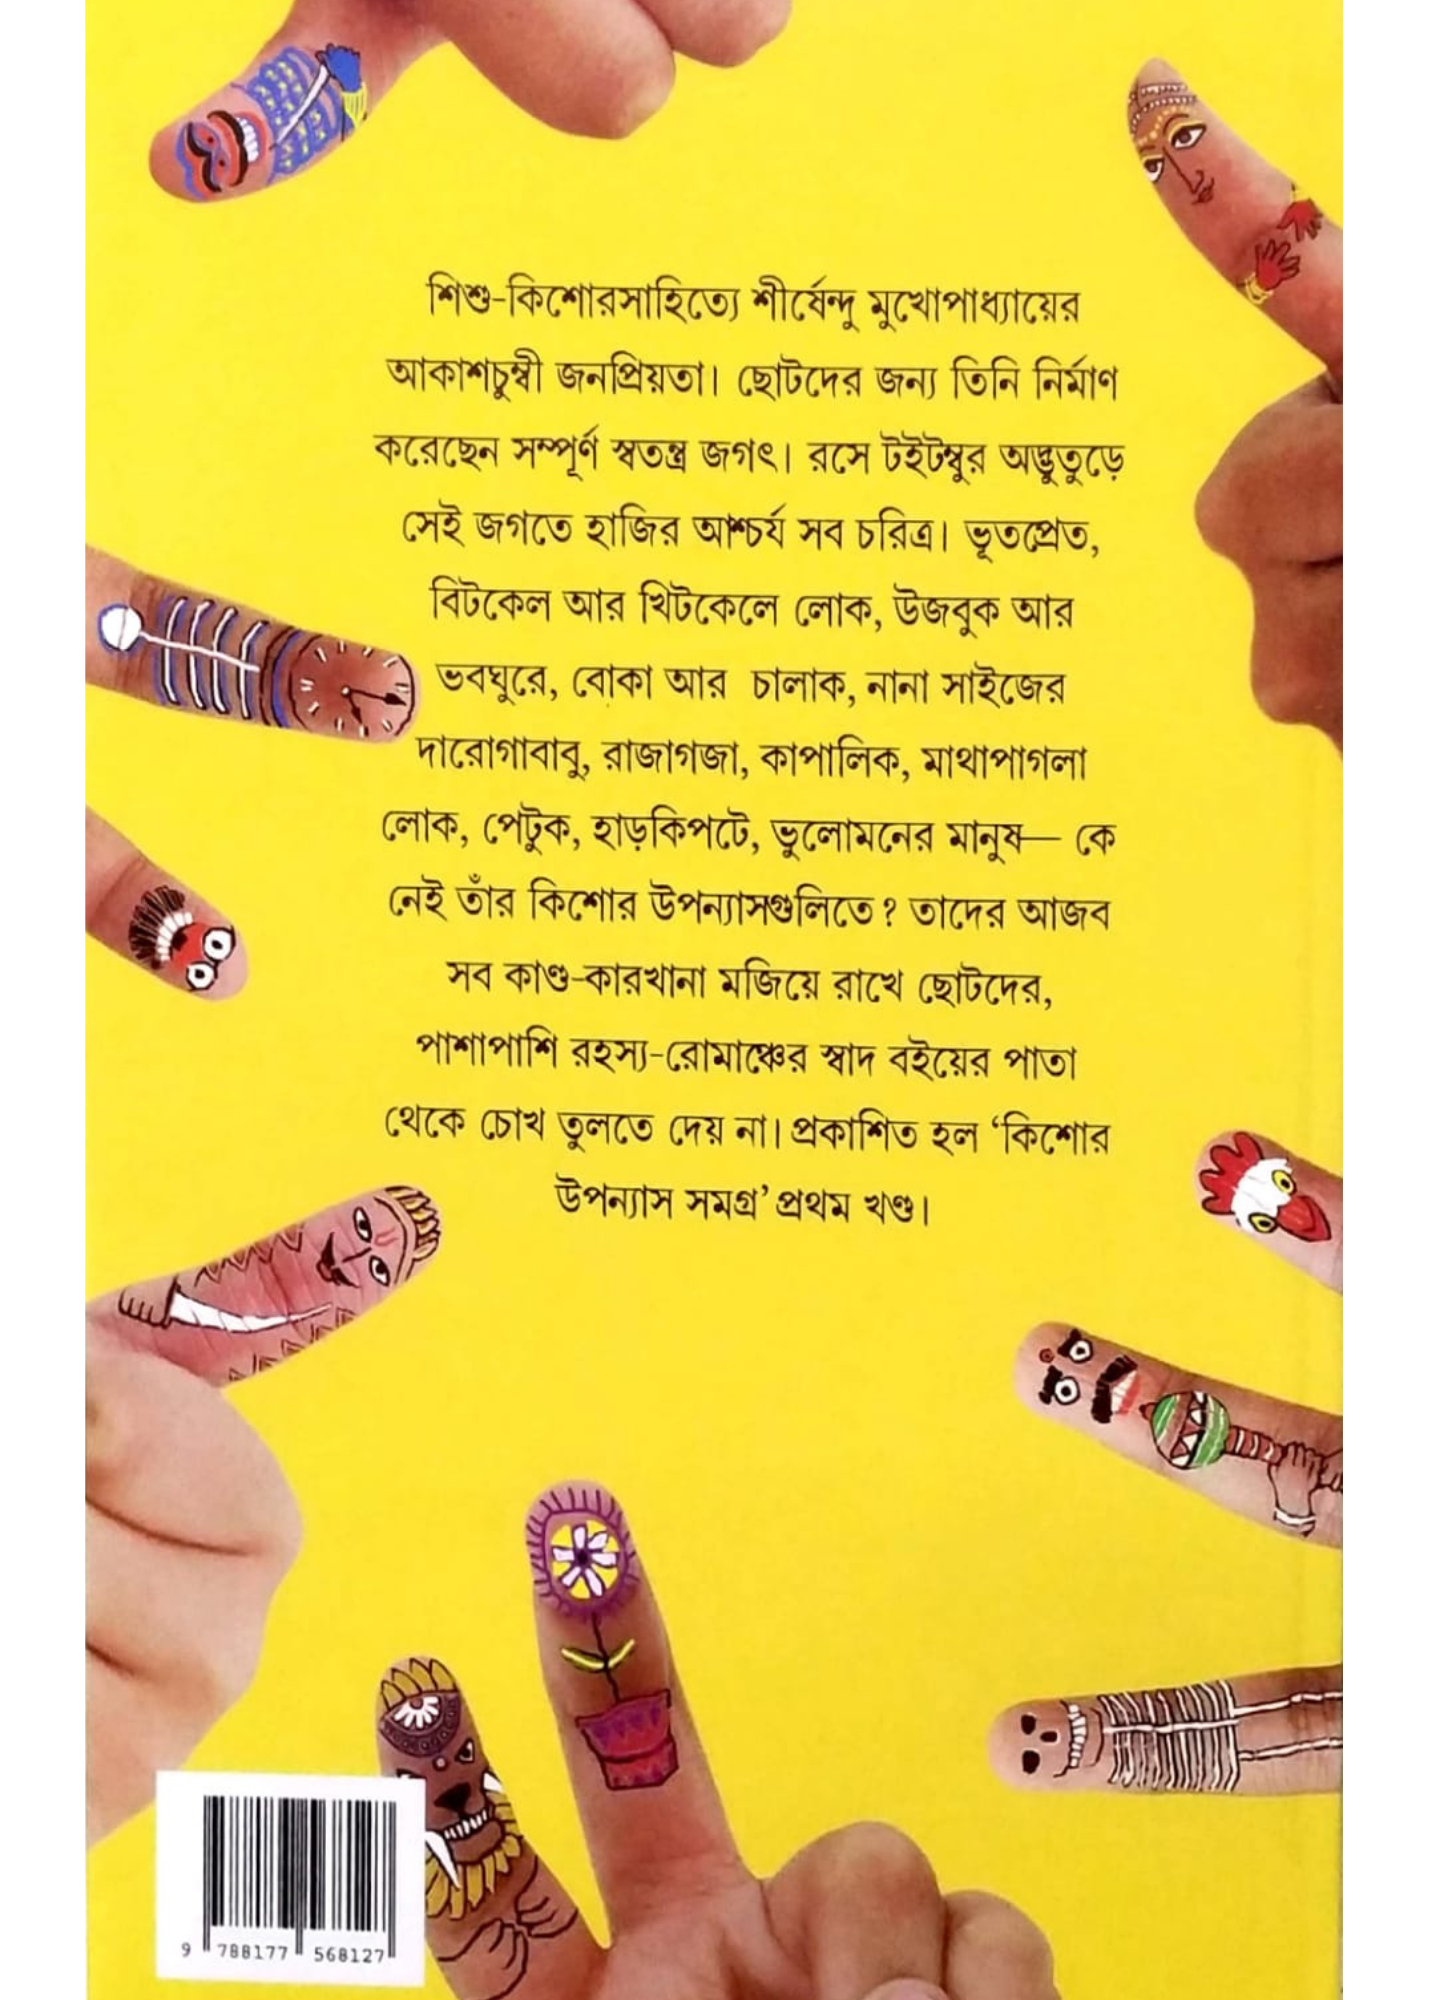 শিশু-কিশোরসাহিত্যে শীর্ষেন্দু মুখোপাধ্যায়ের
আকাশচুম্বী জনপ্রিয়তা। ছোটদের জন্য তিনি নির্মাণ
করেছেন সম্পূর্ণ স্বতন্ত্র জগৎ। রসে টইটম্বুর অদ্ভুতুড়ে
সেই জগতে হাজির আশ্চর্য সব চরিত্র। ভূতপ্রেত,
বিটকেল আর খিটকেলে লোক, উজবুক আর
ভবঘুরে, বোকা আর চালাক, নানা সাইজের
দারোগাবাবু, রাজাগজা, কাপালিক, মাথাপাগলা
লোক, পেটুক, হাড়কিপটে, ভুলোমনের মানুষ— কে
নেই তাঁর কিশোর উপন্যাসগুলিতে? তাদের আজব
সব কাণ্ড-কারখানা মজিয়ে রাখে ছোটদের,
পাশাপাশি রহস্য-রোমাঞ্চের স্বাদ বইয়ের পাতা
থেকে চোখ তুলতে দেয় না। প্রকাশিত হল ‘কিশোর
উপন্যাস সমগ্র’ প্রথম খণ্ড।
9 788177 568127